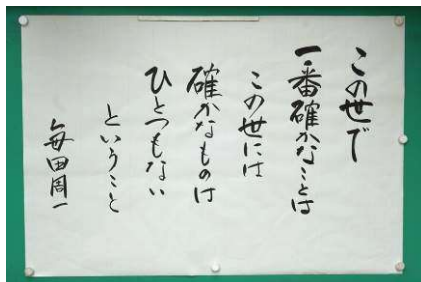 この世で
一番確かなことは
この世には
確かなものは
ひとつもない
ということ
毎田周一